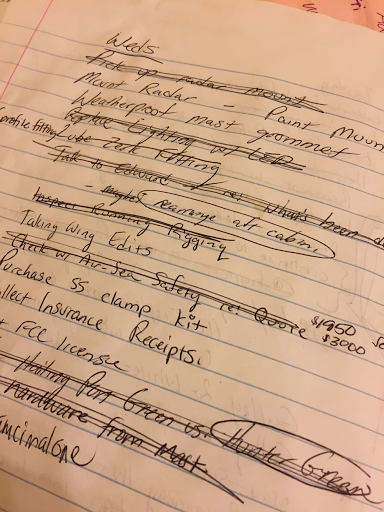 Weds
Pick up radar mount
Mount Radar - Paint Moun
Weatherproof mast grommet
Replace Lighting w/ LED
profile fitting Lube Zerk Fitting
Talk to Edward re: what's been d
- maybe rearrange aft cabin.
Inspect Running Rigging
Taking Wing Edits
Check w/ Air-Sea Safety re: Quote $1950 se
Purchase SS clamp Kit $3000
llect Insurance Receipts.
t FCC license
Hailing Port Green vs. Hunter Green
hardware from Mast
amcinalone